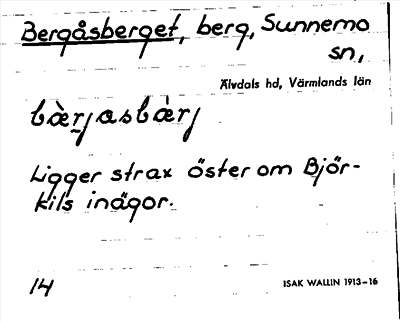 Bergåsberget, berg, Sunnemo
sn,
Älvdals hd, Värmlands län
bæ̀rjasbærj
Ligger strax öster om Björ-
kils inägor.
14
ISAK WALLIN 1913–16